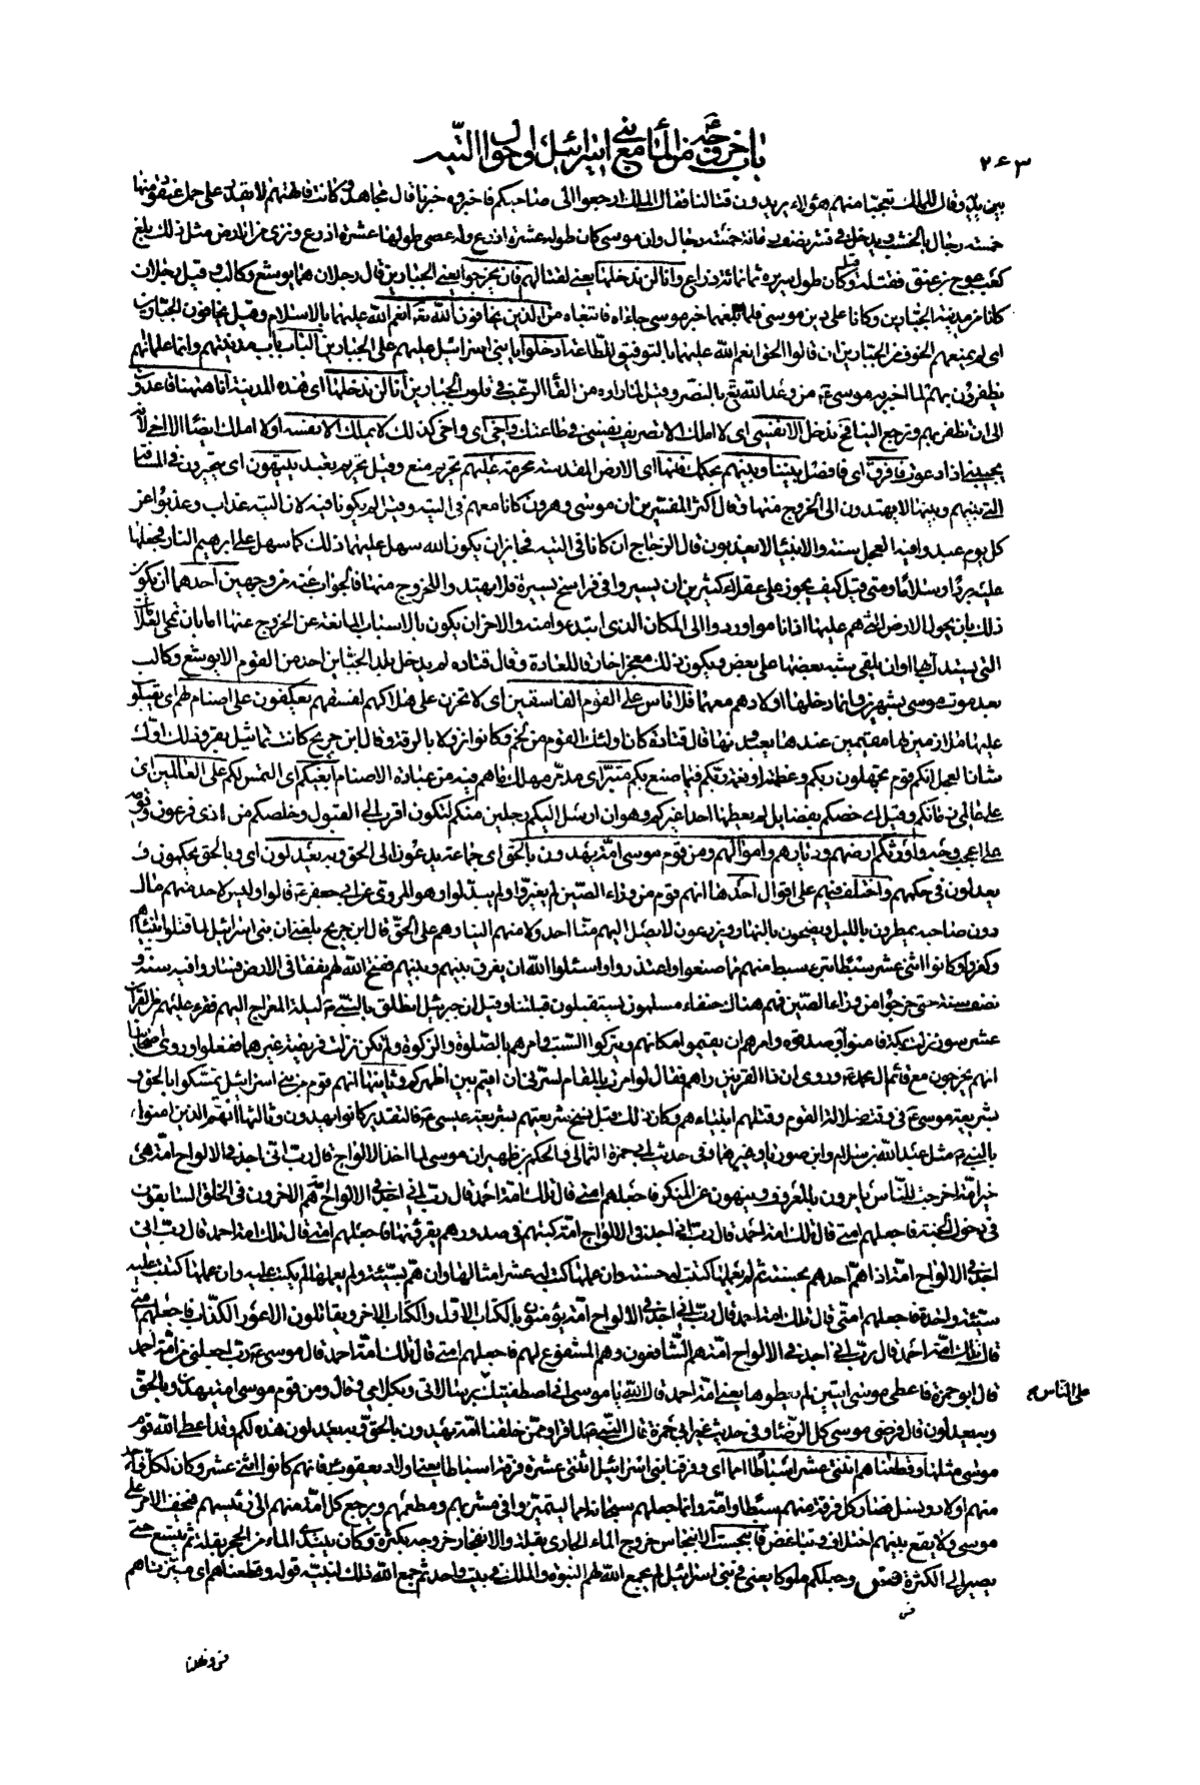 باب خروجه من الماء مع بني اسرائيل واحوال التيه
٢٦٣
بين يديه وقال للملك تعجبا منهم هؤلاء يريدون قتالنا فقال الملك ارجعوا الى صاحبكم فاخبروه خبرنا قال مجاهد وكانت فاكهتهم لا يقدر على حمل عنقود منها
خمسة رجال بالخشب ويدخل في قشر نصف رمانة خمسة رجال وان موسى كان طوله عشرة اذرع وله عصى طولها عشرة اذرع ونزى من الارض مثل ذلك فبلغ
كعب عوج بن عنق فقتله وقيل كان طول سريره ثمانمائة ذراع وانا لن ندخلها يعني لقتالهم فان يخرجوا يعني الجبارين قال رجلان هما يوشع وكالب وقيل رجلان
كانا من مدينة الجبارين وكانا على دين موسى فلما بلغهما خبر موسى جاءاه فاتبعاه من الذين يخافون الله تعالى انعم الله عليهما بالاسلام وقيل يخافون الجبارين
اى لم يمنعهم الخوف من الجبارين ان قالوا الحق انعم الله عليهما بالتوفيق للطاعة ادخلوا يا بني اسرائيل عليهم على الجبارين الباب باب مدينتهم وانما علما انهم
يظفرون بهم لما اخبر به موسى ع من وعد الله تعالى بالنصر وقيل لما راوه من القاء الرعب في قلوب الجبارين انا لن ندخلها اى هذه المدينة انا ههنا قاعدون
الى ان تظفر بهم وترجع الينا فح ندخل الا نفسي اى لا املك الا تصريف نفسي في طاعتك واخي اى واخي كذلك لا يملك الا نفسه او لا املك ايضا الا اخي لانه
يجيبني اذا دعوت فافرق اى فافصل بيننا وبينهم بحكمك فانها اى الارض المقدسة محرمة عليهم تحريم منع وقيل تحريم تعبد يتيهون اى يتحيرون في المسافة
التي بينهم وبينها لا يهتدون الى الخروج منها وقال اكثر المفسرين ان موسى وهرون كانا معهم في التيه وقيل لم يكونا فيه لان التيه عذاب وعذبوا عن
كل يوم عبدوا فيه العجل سنة والانبياء لا يعذبون قال الزجاج ان كانا في التيه فجائز ان يكون الله سهل عليهما ذلك كما سهل على ابرهيم النار فجعلها
عليه بردا وسلاما ومتى قيل كيف يجوز على عقلاء كثيرين ان يسيروا في فراسخ يسيرة فلا يهتدوا للخروج منها فالجواب عنه من وجهين احدهما ان يكون
ذلك بان يحول الارض التي هم عليها اذا ناموا وردوا الى المكان الذي ابتدءوا منه والاخر ان يكون بالاسباب المانعة عن الخروج عنها اما بان تمحى العلامات
التي يستدل بها او ان يلقى شبه بعضها على بعض ويكون ذلك معجزا خارقا للعادة وقال قتادة لم يدخل بلد الجبارين احد من القوم الا يوشع وكالب
بعد موت موسى بشهرين وانما دخلها اولادهم معهما فلا تاس على القوم الفاسقين اى لا تحزن على هلاكهم لفسقهم يعكفون على اصنام لهم اى يقبلون
عليها ملازمين لها مقيمين عندها يعبدونها قال قتادة كان اولئك القوم من لخم وكانوا نزولا بالرقة وقال ابن جريح كانت تماثيل بقر وذلك اول
شان العجل انكم قوم تجهلون ربكم وعظمته او نعمة ربكم فيما صنع بكم متبر اى مدمر مهلك ما هم فيه من عبادة الاصنام ابغيكم اى التمس لكم على العالمين اى
على عالمي زمانكم وقيل اى خصكم بفضايل لم يعطها احدا غيركم وهو ان ارسل اليكم رجلين منكم لتكون اقرب الى القبول وخلصكم من اذى فرعون وقومه
على اعجب وجه واورثكم ارضهم وديارهم واموالهم ومن قوم موسى امة يهدون بالحق اى جماعة يدعون الى الحق وبه يعدلون اى وبالحق يحكمون و
يعدلون في حكمهم واختلف فيهم على اقوال احدها انهم قوم من وراء الصين لم يغيروا ولم يبدلوا وهو المروي عن ابي جعفر ع قالوا وليس لاحد منهم مال
دون صاحبه يمطرون بالليل ويضحون بالنهار ويزرعون لا يصل اليهم منا احد ولا منهم الينا وهم على الحق قال ابن جريح بلغني ان بني اسرائيل لما قتلوا انبياءهم
وكفروا وكانوا اثني عشر سبطا تبرء سبط منهم مما صنعوا واعتذروا وسئلوا الله ان يفرق بينهم وبينهم ففتح الله لهم نفقا في الارض فساروا فيه سنة و
نصف سنة حتى خرجوا من وراء الصين فهم هناك حنفاء مسلمون يستقبلون قبلتنا وقيل ان جبرئيل انطلق بالنبي ص ليلة المعراج اليهم فقرء عليهم من القران
عشر سور نزلت بمكة فامنوا به وصدقوه وامرهم ان يقيموا مكانهم ويتركوا السبت وامرهم بالصلوة والزكوة ولم تكن نزلت فريضة غيرهما ففعلوا وروى اصحابنا
انهم يخرجون مع قائم ال محمد ع وروي ان ذا القرنين راهم فقال لو امرت بالمقام لسرني ان اقيم بين اظهركم وثانيها انهم قوم من بني اسرائيل تمسكوا بالحق و
بشريعة موسى ع في وقت ضلالة القوم وقتلهم انبياءهم وكان ذلك قبل نسخ شريعتهم بشريعة عيسى ع فالتقدير كانوا يهدون وثالثها انهم الذين امنوا
بالنبي ص مثل عبد الله بن سلام وابن صوريا وغيرهما وفي حديث ابي حمزة الثمالي والحكم بن ظهير ان موسى لما اخذ الالواح قال رب اني اجد في الالواح امة هي
خير امة اخرجت للناس يامرون بالمعروف وينهون عن المنكر فاجعلهم امتي قال تلك امة احمد قال رب اني اجد في الالواح امة هم الاخرون في الخلق السابقون
في دخول الجنة فاجعلهم امتي قال تلك امة احمد قال رب اني اجد في الالواح امة كتبهم في صدورهم يقرؤنها فاجعلهم امتي قال تلك امة احمد قال رب اني
اجد في الالواح امة اذا هم احدهم بحسنة ثم لم يعملها كتبت له حسنة وان عملها كتب له عشر امثالها وان هم بسيئة ولم يعملها لم يكتب عليه وان عملها كتبت عليه
سيئة واحدة فاجعلهم امتي قال تلك امة احمد قال رب اني اجد في الالواح امة يؤمنون بالكتاب الاول والكتاب الاخر ويقاتلون الاعور الكذاب فاجعلهم امتي
قال تلك امة احمد قال رب اني اجد في الالواح امة هم الشافعون وهم المشفوع لهم فاجعلهم امتي قال تلك امة احمد قال موسى ع رب اجعلني من امة احمد
قال ابو حمزة فاعطى موسى ايتين لم يعطوها يعني امة احمد قال الله يا موسى اني اصطفيتك برسالاتي وبكلامي وقال ومن قوم موسى امة يهدون بالحق
على الناس
وبه يعدلون قال فرضى موسى كل الرضا وفي حديث غير ابي حمزة قال النبي ص لما قرا وممن خلقنا امة يهدون بالحق وبه يعدلون هذه لكم وقد اعطى الله قوم
موسى مثلها وقطعناهم اثنتي عشرة اسباطا امما اى وفرقنا بني اسرائيل اثنتي عشرة فرقة اسباطا يعني اولاد يعقوب ع فانهم كانوا اثنى عشر وكان لكل واحد
منهم اولاد ونسل فصار كل فرقة منهم سبطا وامة وانما جعلهم سبحانه امما ليتميزوا في مشربهم ومطعمهم ويرجع كل امة منهم الى رئيسهم فيخف الامر على
موسى ولا يقع بينهم اختلاف وتباغض فانبجست الانبجاس خروج الماء الجاري بقلة والانفجار خروجه بكثرة وكان يبتدئ الماء من الحجر بقلة ثم يتسع حتى
يصير الى الكثرة فس وجعلكم ملوكا يعني في بني اسرائيل لم يجمع الله لهم النبوة والملك في بيت واحد ثم جمع الله ذلك لنبيه قوله وقطعناهم اى ميزناهم